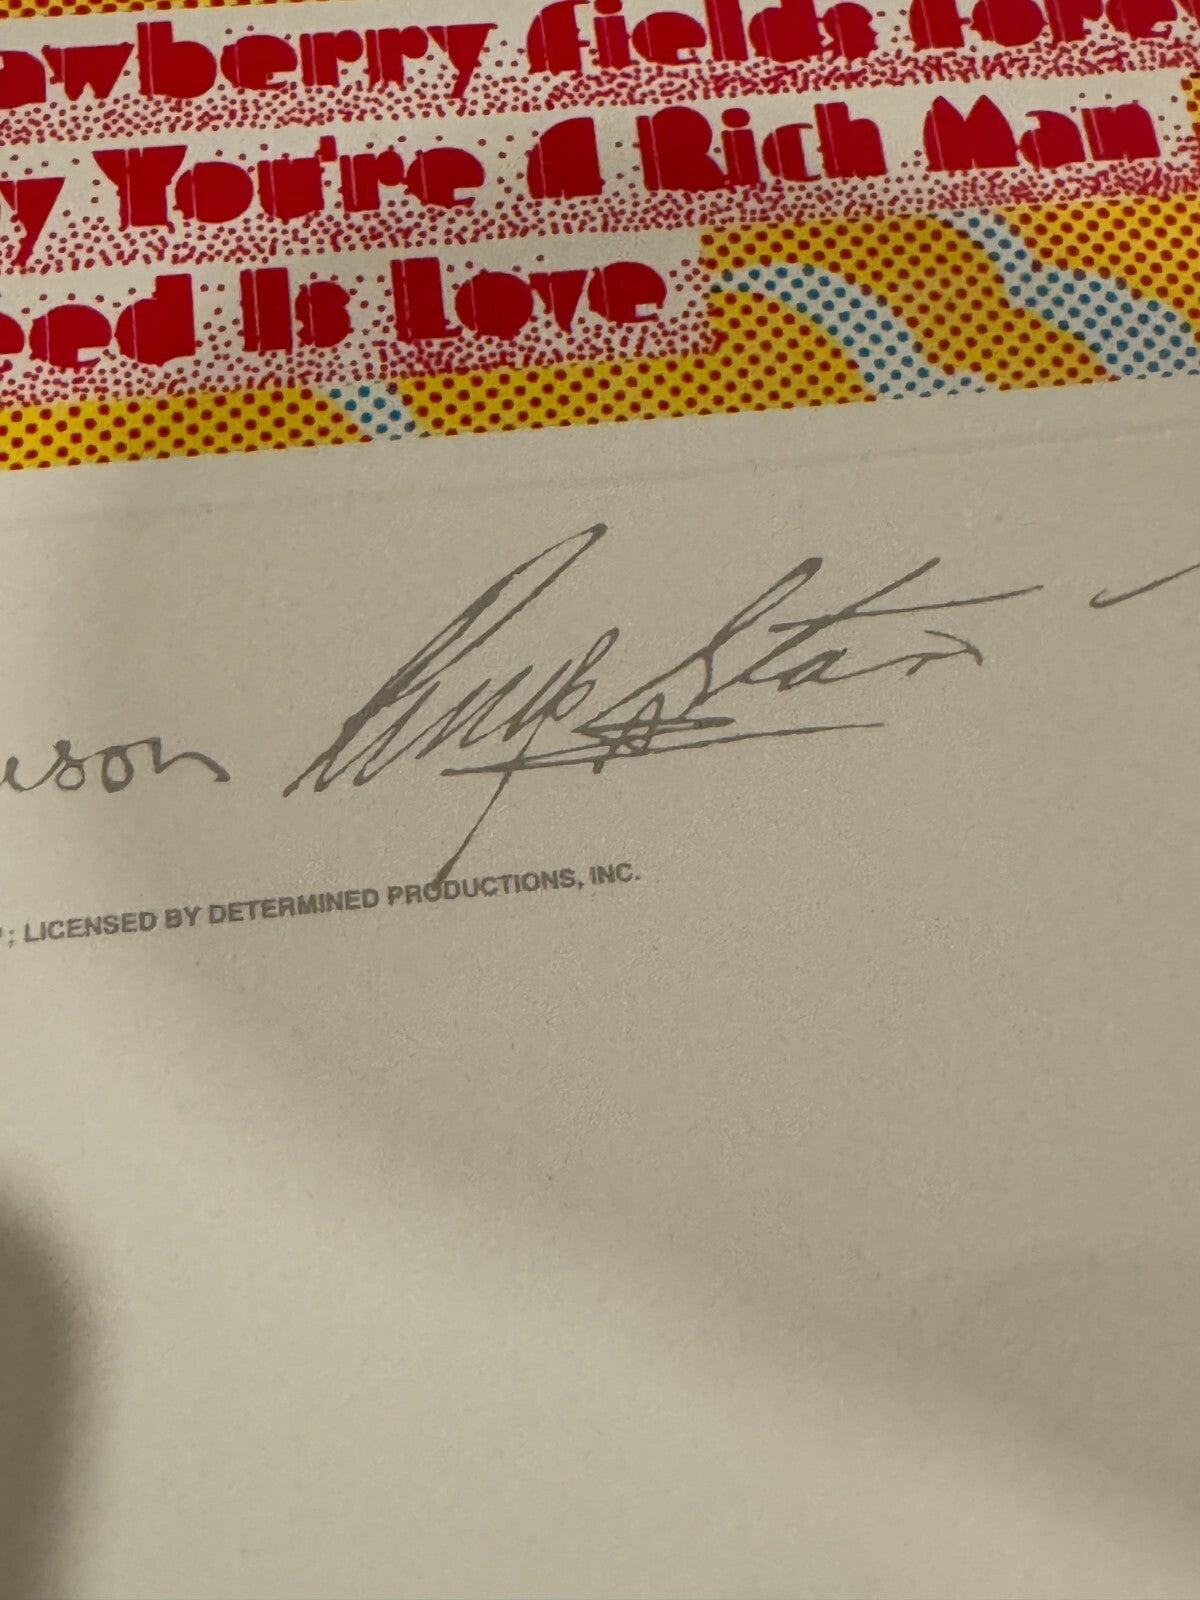 awberry Fields Fore
y You're A Rich Man
eed Is Love
Ringo Starr
son
; LICENSED BY DETERMINED PRODUCTIONS, INC.